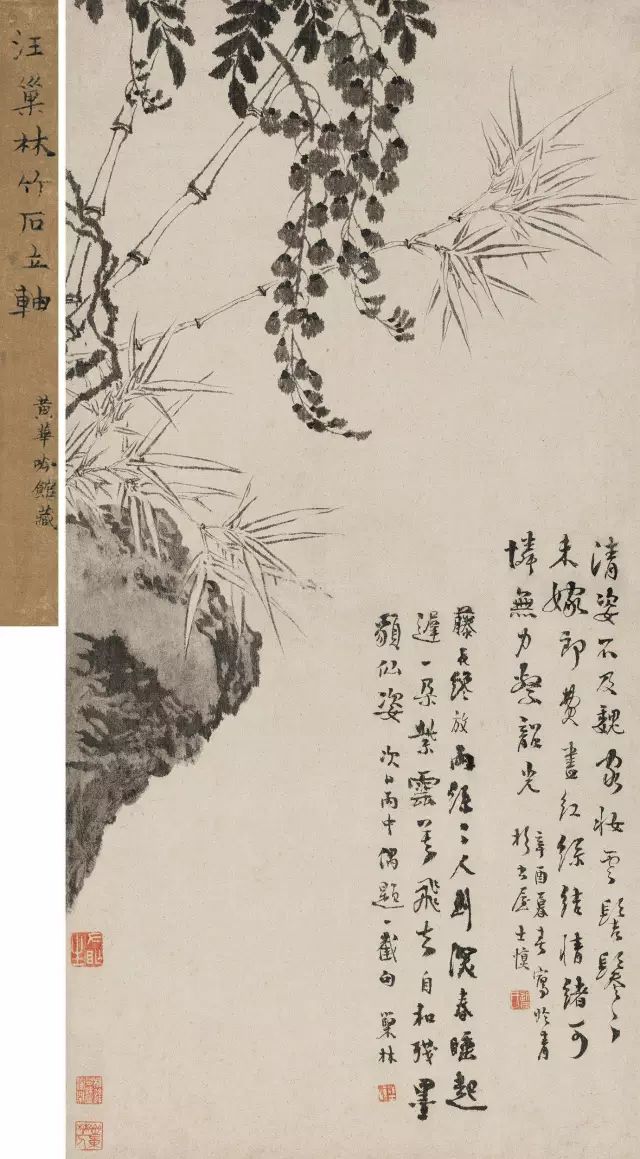 汪巢林竹石立軸
黃華吟館藏
清姿不及魏家妝雲髩鬖〻
未嫁郎費盡紅絲結情緒可
憐無力繫韶光
辛酉暮春寫於青
杉書屋士慎
藤花纔放雨絲〻人到深春睡起
遲一朵紫雲飛去自和殘墨
貌仙姿 次日雨中偶題一截句 巢林